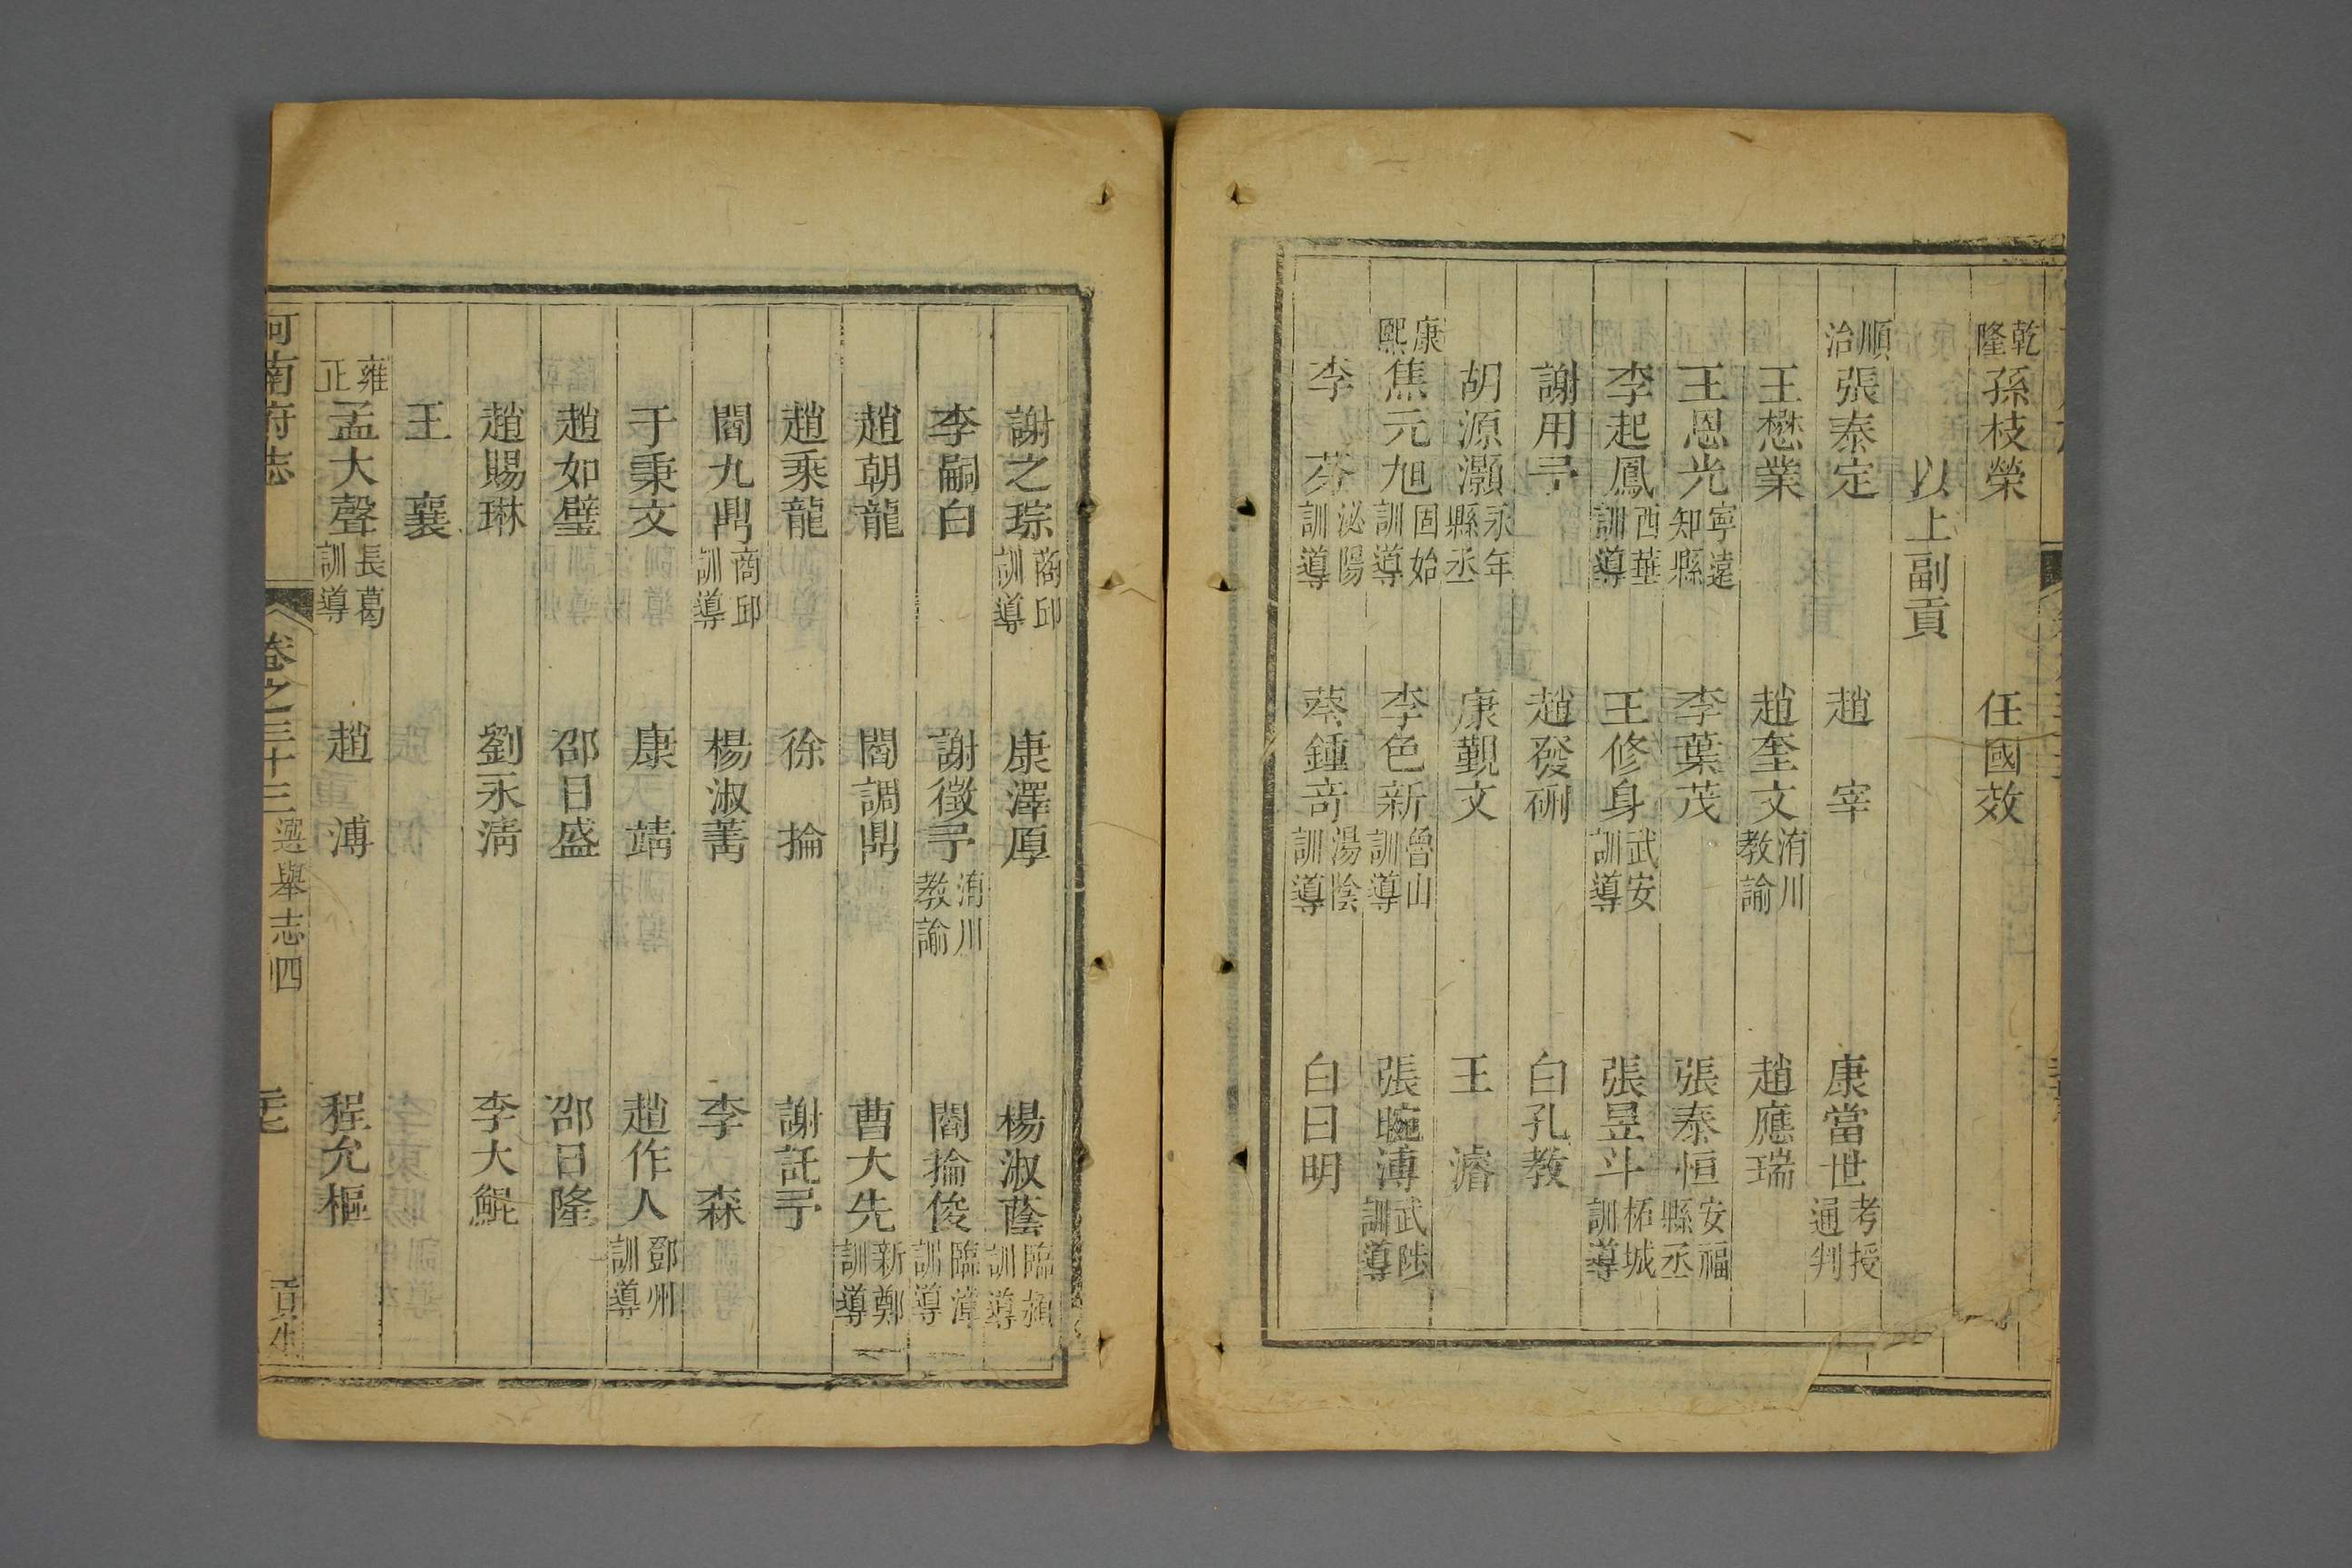 乾隆 孫枝榮 任國效
以上副貢
順治 張泰定 趙宰 康當世 考授通判
王懋業 趙奎文 洧川教諭 趙應瑞
王恩光 寧遠知縣 李葉茂 張泰恒 安福縣丞
李起鳳 西華訓導 王修身 武安訓導 張昱斗 柘城訓導
謝用予 趙發硎 白孔教
胡源灝 永年縣丞 康觐文 王濬
康熙 焦元旭 固始訓導 李色新 魯山訓導 張畹溥 武陟訓導
李芬 泌陽訓導 蔡鍾奇 湯陰訓導 白曰明
謝之琮 商邱訓導 康澤厚 楊淑蔭 臨潁訓導
李嗣白 謝徵予 洧川教諭 閻掄俊 臨漳訓導
趙朝龍 閻調鼎 曹大先 新鄭訓導
趙乘龍 徐掄 謝託予
閻九鼎 商邱訓導 楊淑菁 李森
于秉文 康靖 趙作人 鄧州訓導
趙如璧 邵日盛 邵日隆
趙賜琳 劉永清 李大鯤
王襄
雍正 孟大聲 長葛訓導 趙溥 程允樞
河南府志 卷之三十三 選舉志四 貢生